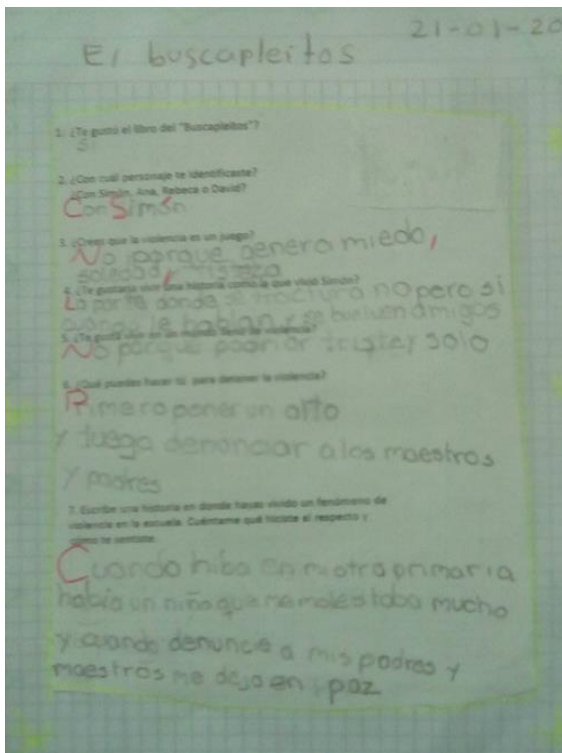 21-01-20
El buscapleitos
1. ¿Te gustó el libro del "Buscapleitos"?
Si
2. ¿Con cuál personaje te identificaste?
¿Con Simón, Ana, Rebeca o David?
Con Simón
3. ¿Crees que la violencia es un juego?
No porque genera miedo,
soledad y tristeza
4. ¿Te gustaría vivir una historia como la que vivió Simón?
La parte donde se fractura no pero si
cuando le hablan y se buelven amigos
5. ¿Te gusta vivir en un la violencia?
No porque triste y solo
6. ¿Qué puedes hacer tú para detener la violencia?
Primero poner un alto
y luego denonciar a los maestros
y padres
7. Escribe una historia en donde hayas vivido un fenómeno de
violencia en la escuela. Cuéntame qué hiciste al respecto y
cómo te sentiste.
Cuando hiba en mi otra primaria
había un niño que me molestaba mucho
y cuando denuncie a mis padres y
maestros me dejo en paz